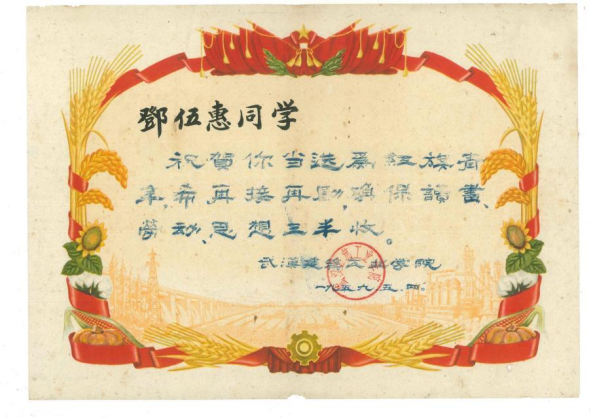 鄧伍惠同学
祝賀你当选爲红旗青
年希再接再励,确保讀書、
勞动、思想三丰收。
武漢建築工业学院
一九五九.五.四.